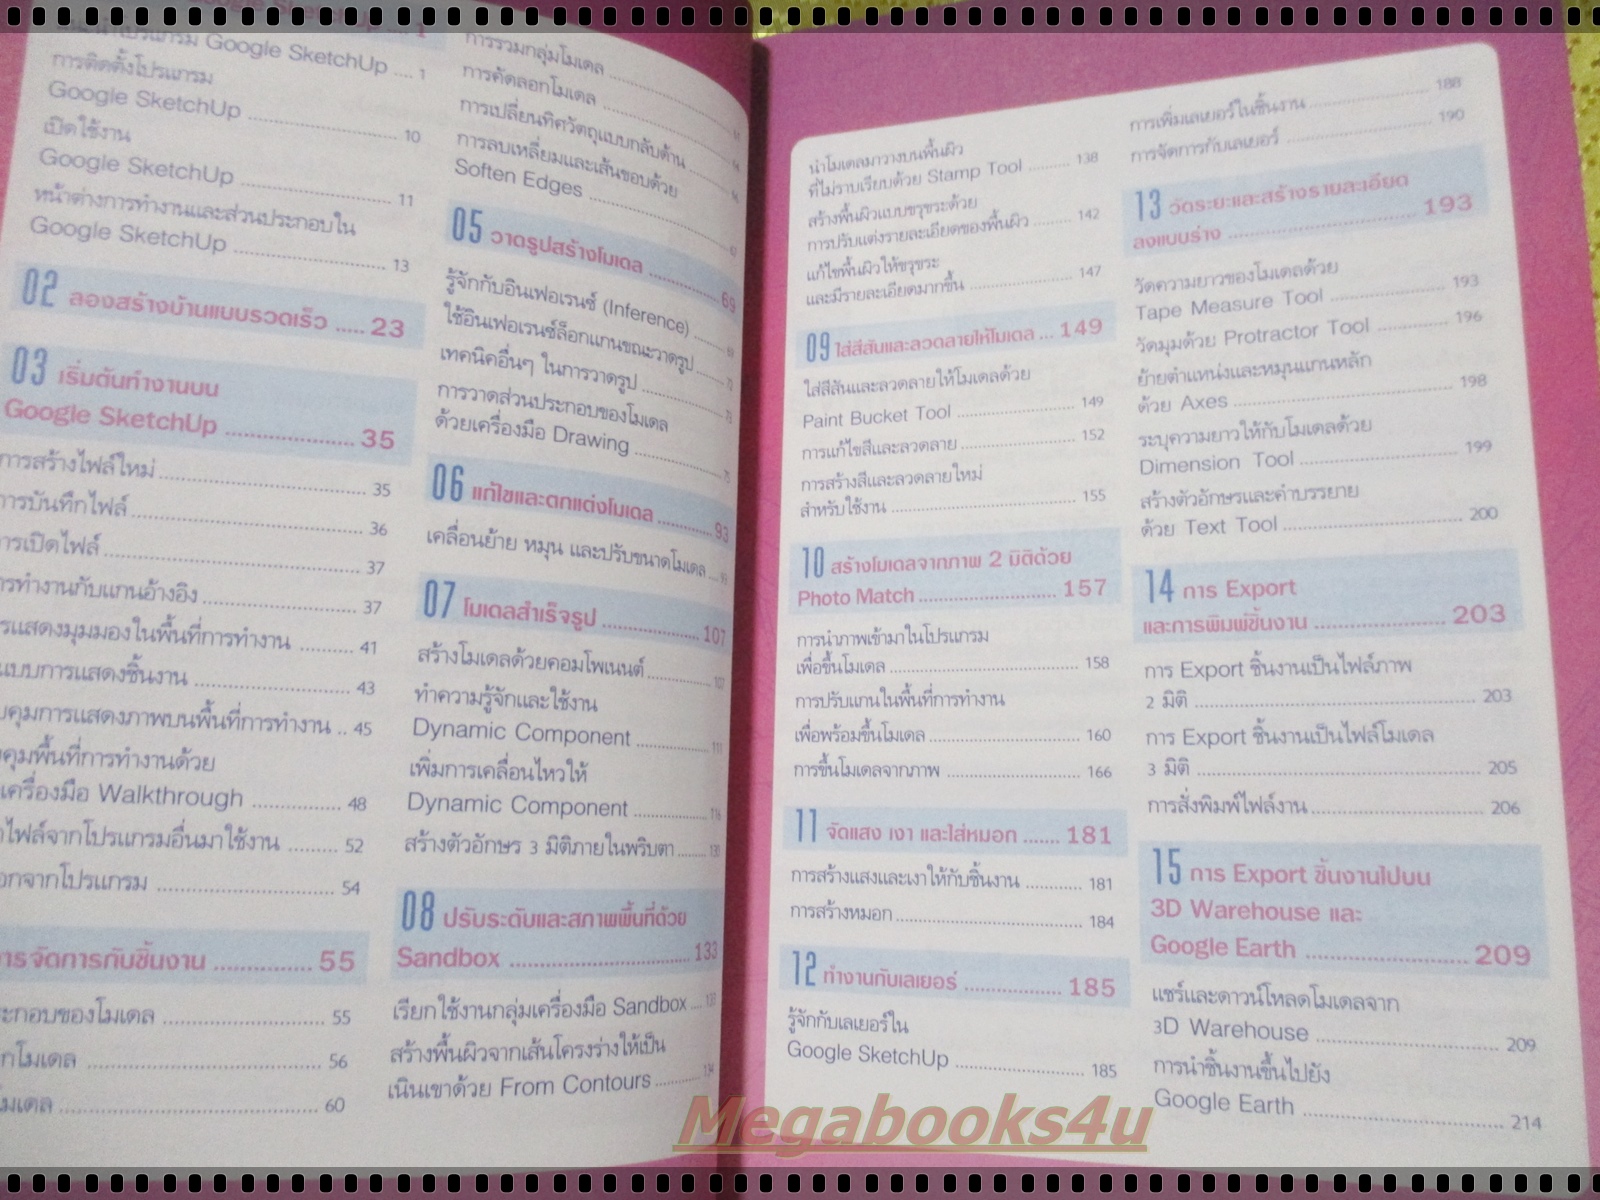 Google SketchUp .... 1
การติดตั้งโปรแกรม
Google SketchUp .... 10
เปิดใช้งาน
Google SketchUp .... 11
หน้าต่างการทำงานและส่วนประกอบใน
Google SketchUp .... 13
02 ลองสร้างบ้านแบบรวดเร็ว ..... 23
03 เริ่มต้นทำงานบน
Google SketchUp .... 35
การสร้างไฟล์ใหม่ .... 35
การบันทึกไฟล์ .... 36
การเปิดไฟล์ .... 37
การทำงานกับแกนอ้างอิง .... 37
แสดงมุมมองในพื้นที่การทำงาน .... 41
แบบการแสดงชิ้นงาน .... 43
คุมการแสดงภาพบนพื้นที่การทำงาน .. 45
คุมพื้นที่การทำงานด้วย
เครื่องมือ Walkthrough .... 48
ไฟล์จากโปรแกรมอื่นมาใช้งาน .... 52
ออกจากโปรแกรม .... 54
การจัดการกับชิ้นงาน .... 55
ประกอบของโมเดล .... 55
โมเดล .... 56
โมเดล .... 60
การรวมกลุ่มโมเดล ....
การคัดลอกโมเดล ....
การเปลี่ยนทิศวัตถุแบบกลับด้าน ....
การลบเหลี่ยมและเส้นขอบด้วย
Soften Edges ....
05 วาดรูปสร้างโมเดล .... 69
รู้จักกับอินเฟอเรนซ์ (Inference) ....
ใช้อินเฟอเรนซ์ล็อกแกนขณะวาดรูป ....
เทคนิคอื่นๆ ในการวาดรูป ....
การวาดส่วนประกอบของโมเดล
ด้วยเครื่องมือ Drawing ....
06 แก้ไขและตกแต่งโมเดล .... 93
เคลื่อนย้าย หมุน และปรับขนาดโมเดล ...
07 โมเดลสำเร็จรูป .... 107
สร้างโมเดลด้วยคอมโพเนนต์ .... 107
ทำความรู้จักและใช้งาน
Dynamic Component .... 111
เพิ่มการเคลื่อนไหวให้
Dynamic Component .... 116
สร้างตัวอักษร 3 มิติภายในพริบตา ....
08 ปรับระดับและสภาพพื้นที่ด้วย
Sandbox .... 133
เรียกใช้งานกลุ่มเครื่องมือ Sandbox .... 133
สร้างพื้นผิวจากเส้นโครงร่างให้เป็น
เนินเขาด้วย From Contours .... 134
นำโมเดลมาวางบนพื้นผิว
ที่ไม่ราบเรียบด้วย Stamp Tool .... 138
สร้างพื้นผิวแบบขรุขระด้วย
การปรับแต่งรายละเอียดของพื้นผิว .... 142
แก้ไขพื้นผิวให้ขรุขระ
และมีรายละเอียดมากขึ้น .... 147
09 ใส่สีสันและลวดลายให้โมเดล ... 149
ใส่สีสันและลวดลายให้โมเดลด้วย
Paint Bucket Tool .... 149
การแก้ไขสีและลวดลาย .... 152
การสร้างสีและลวดลายใหม่
สำหรับใช้งาน .... 155
10 สร้างโมเดลจากภาพ 2 มิติด้วย
Photo Match .... 157
การนำภาพเข้ามาในโปรแกรม
เพื่อขึ้นโมเดล .... 158
การปรับแกนในพื้นที่การทำงาน
เพื่อพร้อมขึ้นโมเดล .... 160
การขึ้นโมเดลจากภาพ .... 166
11 จัดแสง เงา และใส่หมอก .... 181
การสร้างแสงและเงาให้กับชิ้นงาน .... 181
การสร้างหมอก .... 184
12 ทำงานกับเลเยอร์ .... 185
รู้จักกับเลเยอร์ใน
Google SketchUp .... 185
การเพิ่มเลเยอร์ในชิ้นงาน .... 188
การจัดการกับเลเยอร์ .... 190
13 วัดระยะและสร้างรายละเอียด
ลงแบบร่าง .... 193
วัดความยาวของโมเดลด้วย
Tape Measure Tool .... 193
วัดมุมด้วย Protractor Tool .... 196
ย้ายตำแหน่งและหมุนแกนหลัก
ด้วย Axes .... 198
ระบุความยาวให้กับโมเดลด้วย
Dimension Tool .... 199
สร้างตัวอักษรและคำบรรยาย
ด้วย Text Tool .... 200
14 การ Export
และการพิมพ์ชิ้นงาน .... 203
การ Export ชิ้นงานเป็นไฟล์ภาพ
2 มิติ .... 203
การ Export ชิ้นงานเป็นไฟล์โมเดล
3 มิติ .... 205
การสั่งพิมพ์ไฟล์งาน .... 206
15 การ Export ชิ้นงานไปบน
3D Warehouse และ
Google Earth .... 209
แชร์และดาวน์โหลดโมเดลจาก
3D Warehouse .... 209
การนำชิ้นงานขึ้นไปยัง
Google Earth .... 214
Megabooks4u